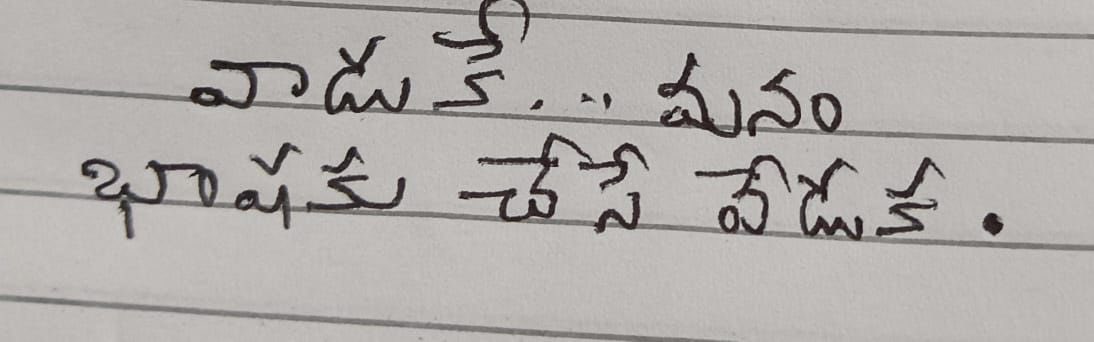 వాడుకే... మనం
భాషకు చేసే వేడుక.